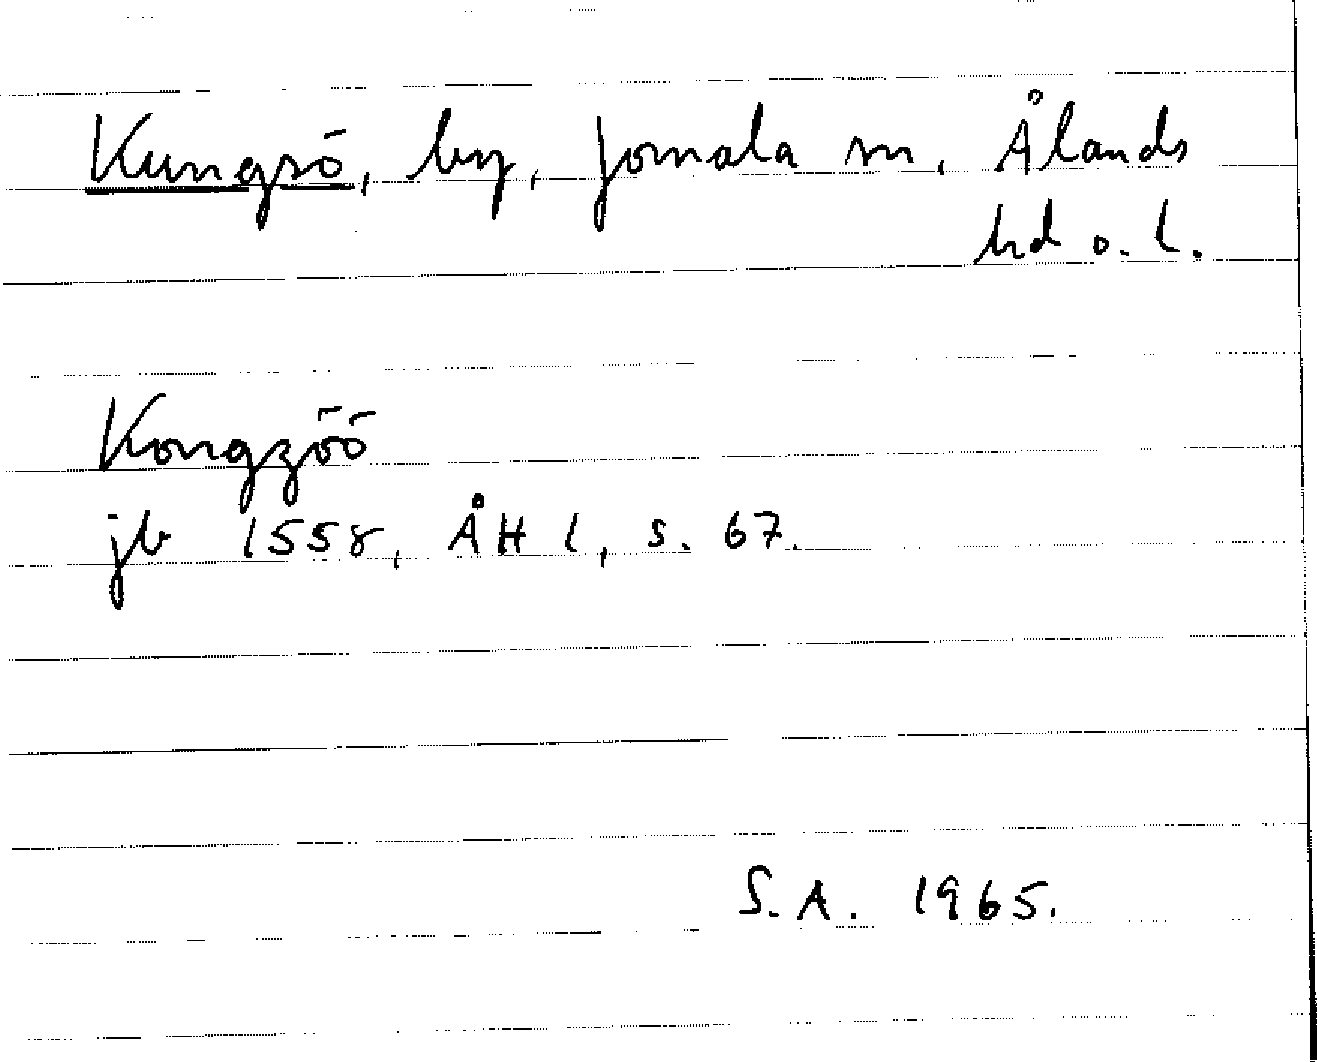 Kungsö, by, Jomala sn, Ålands
hd o. l.
Kongzöö
jb 1558, ÅH 1, s. 67.
S.A. 1965.